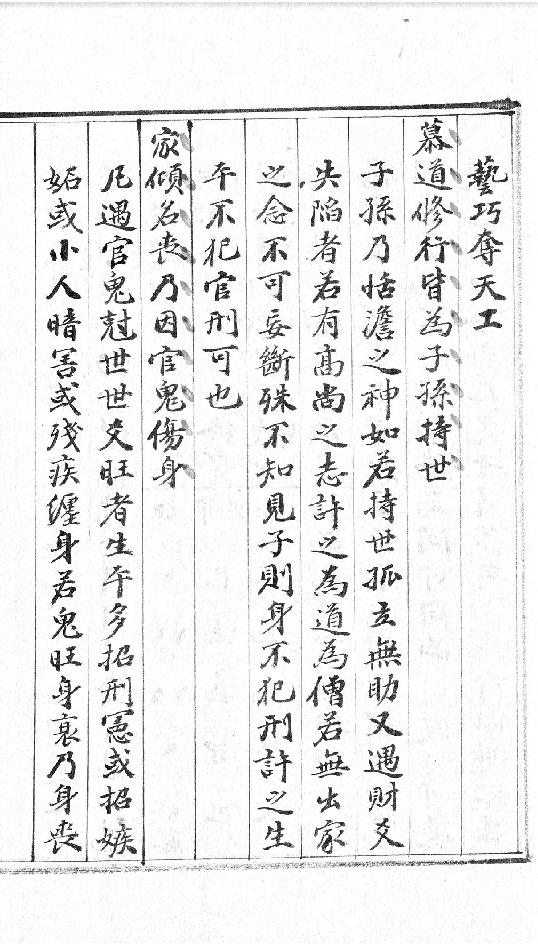 藝巧奪天工
慕道修行皆為子孫持世
子孫乃恬澹之神如若持世孤立無助又遇財爻
失陷者若有高尚之志許之為道為僧若無出家
之念不可妄斷殊不知見子則身不犯刑許之生
平不犯官刑可也
家傾名喪乃因官鬼傷身
凡遇官鬼尅世世爻旺者生平多招刑憲或招嫉
妬或小人暗害或殘疾纏身若鬼旺身衰乃身喪